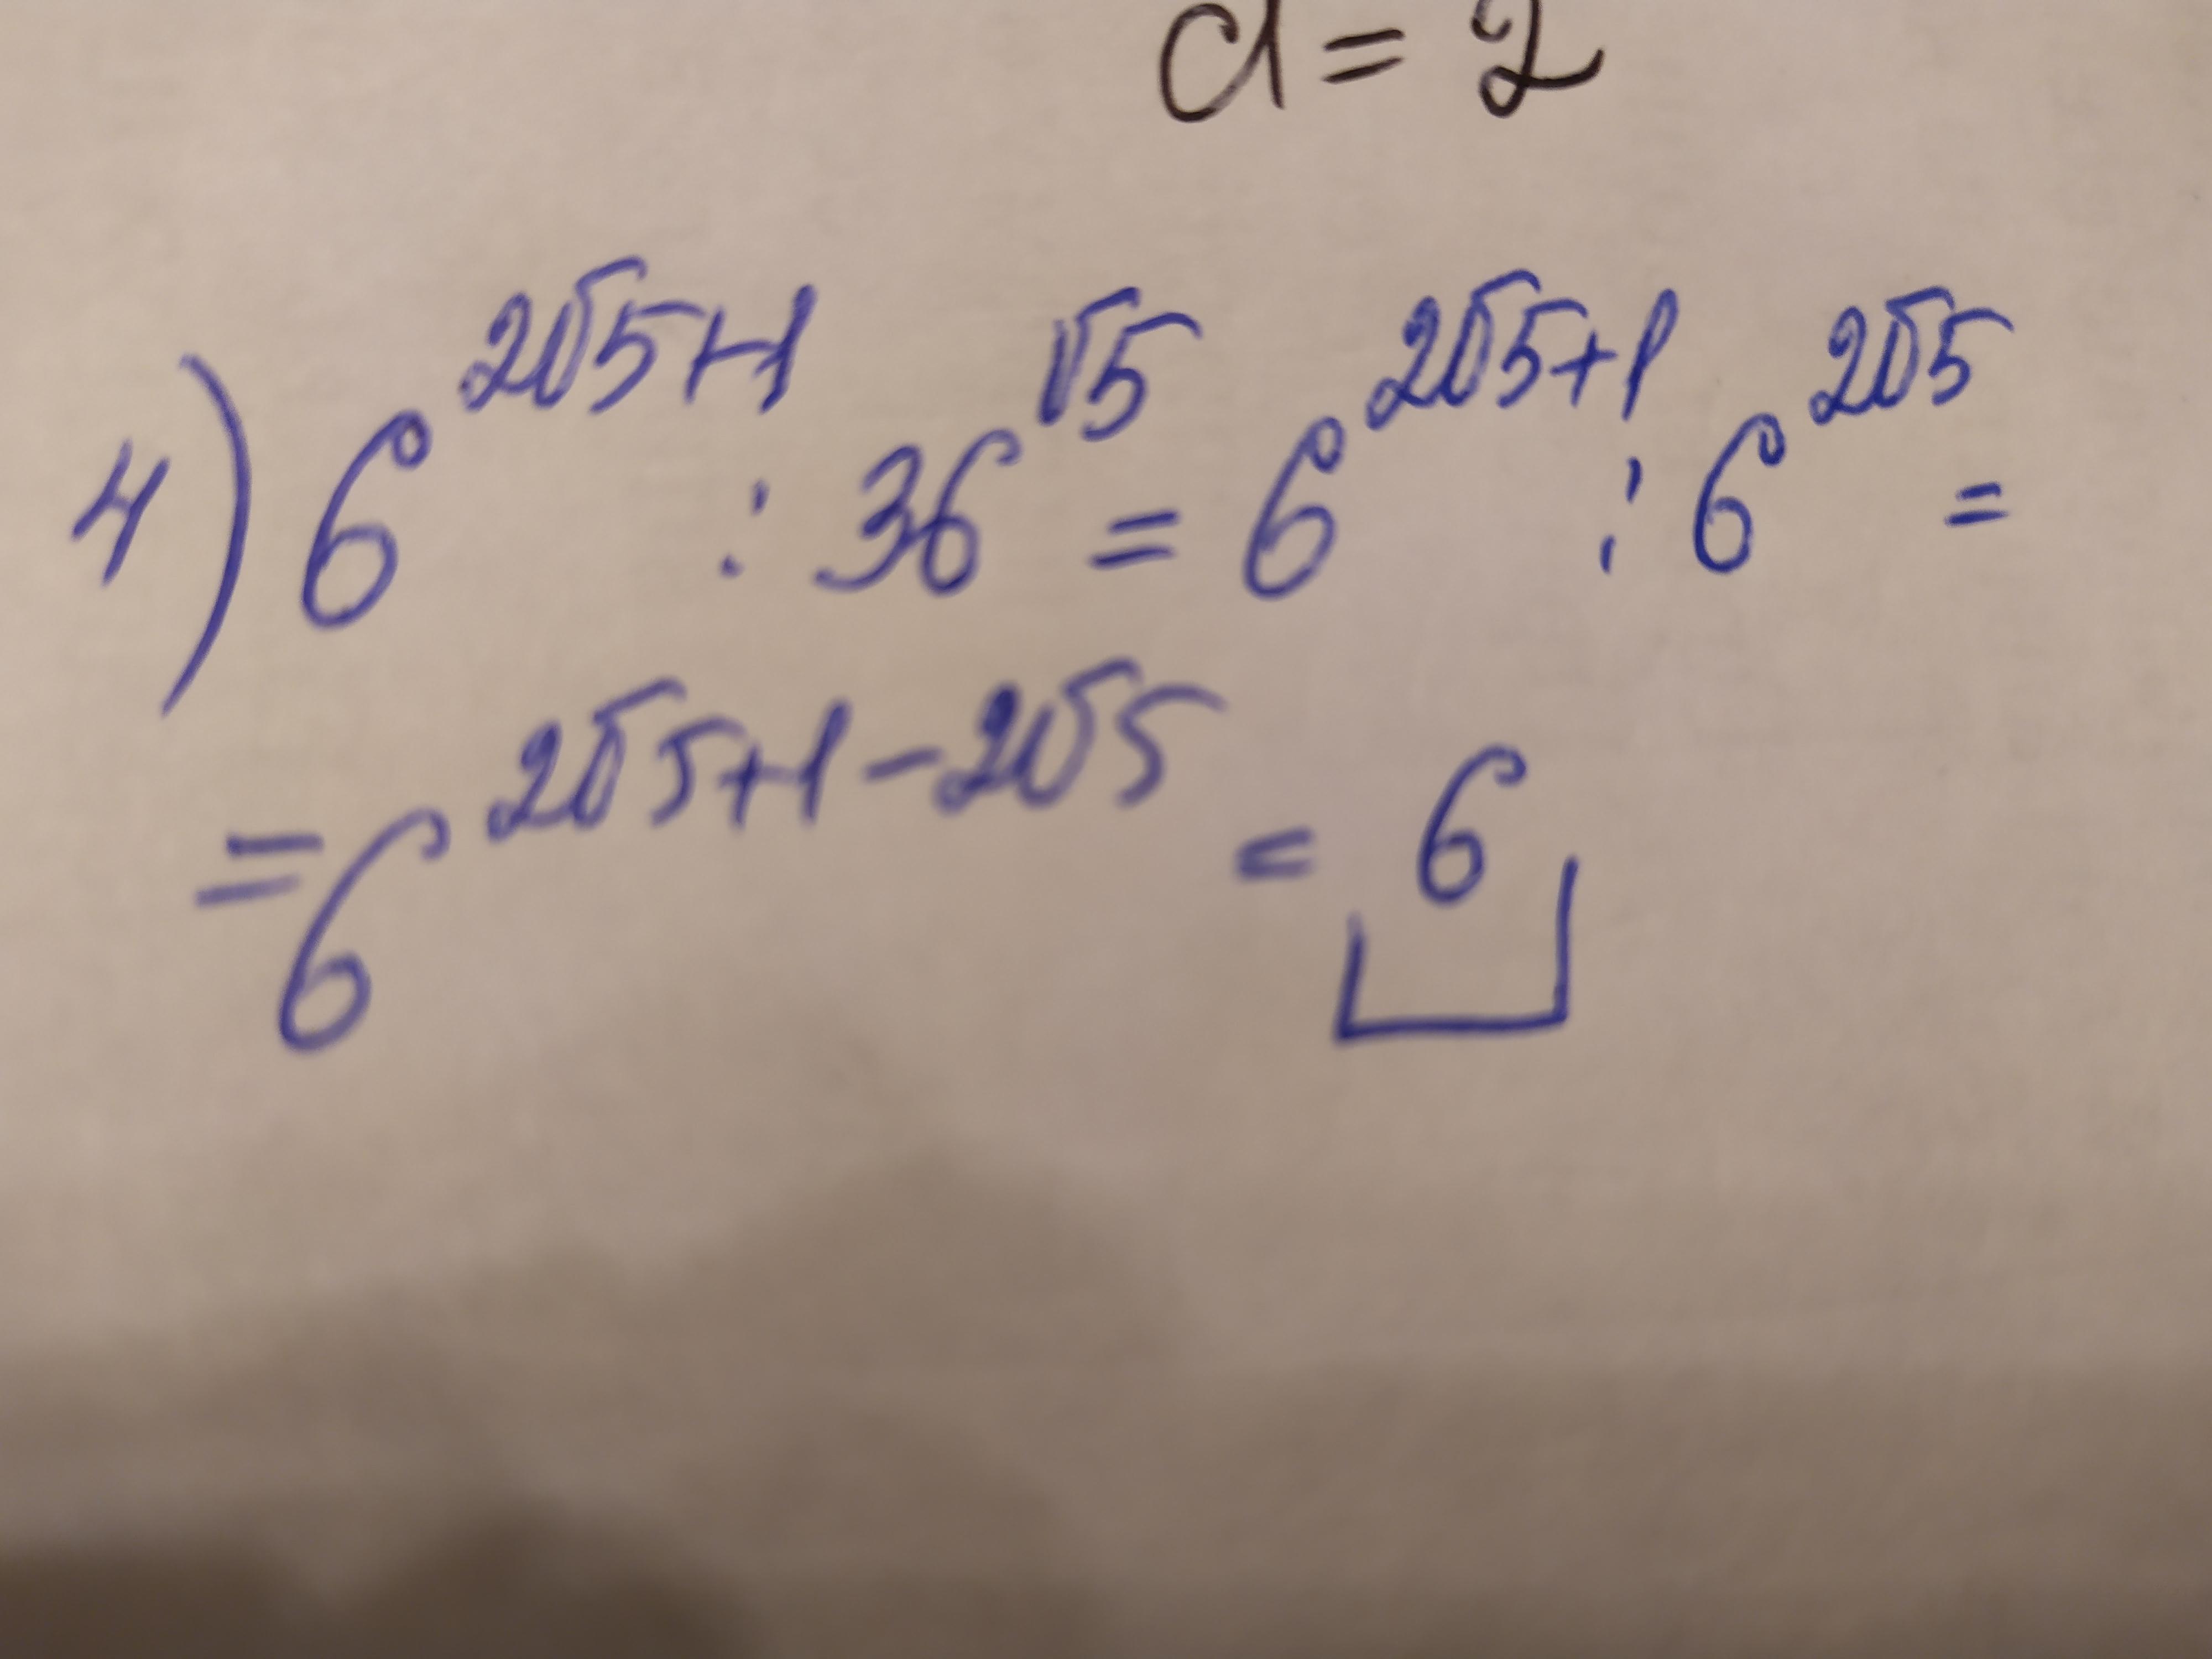 d = 2
4) 6^{2√5+1} : 36^{√5} = 6^{2√5+1} : 6^{2√5} =
= 6^{2√5+1-2√5} = 6